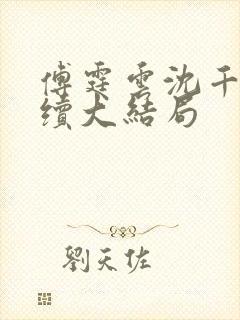 傅霆雲沈千
續大結局
劉天佐